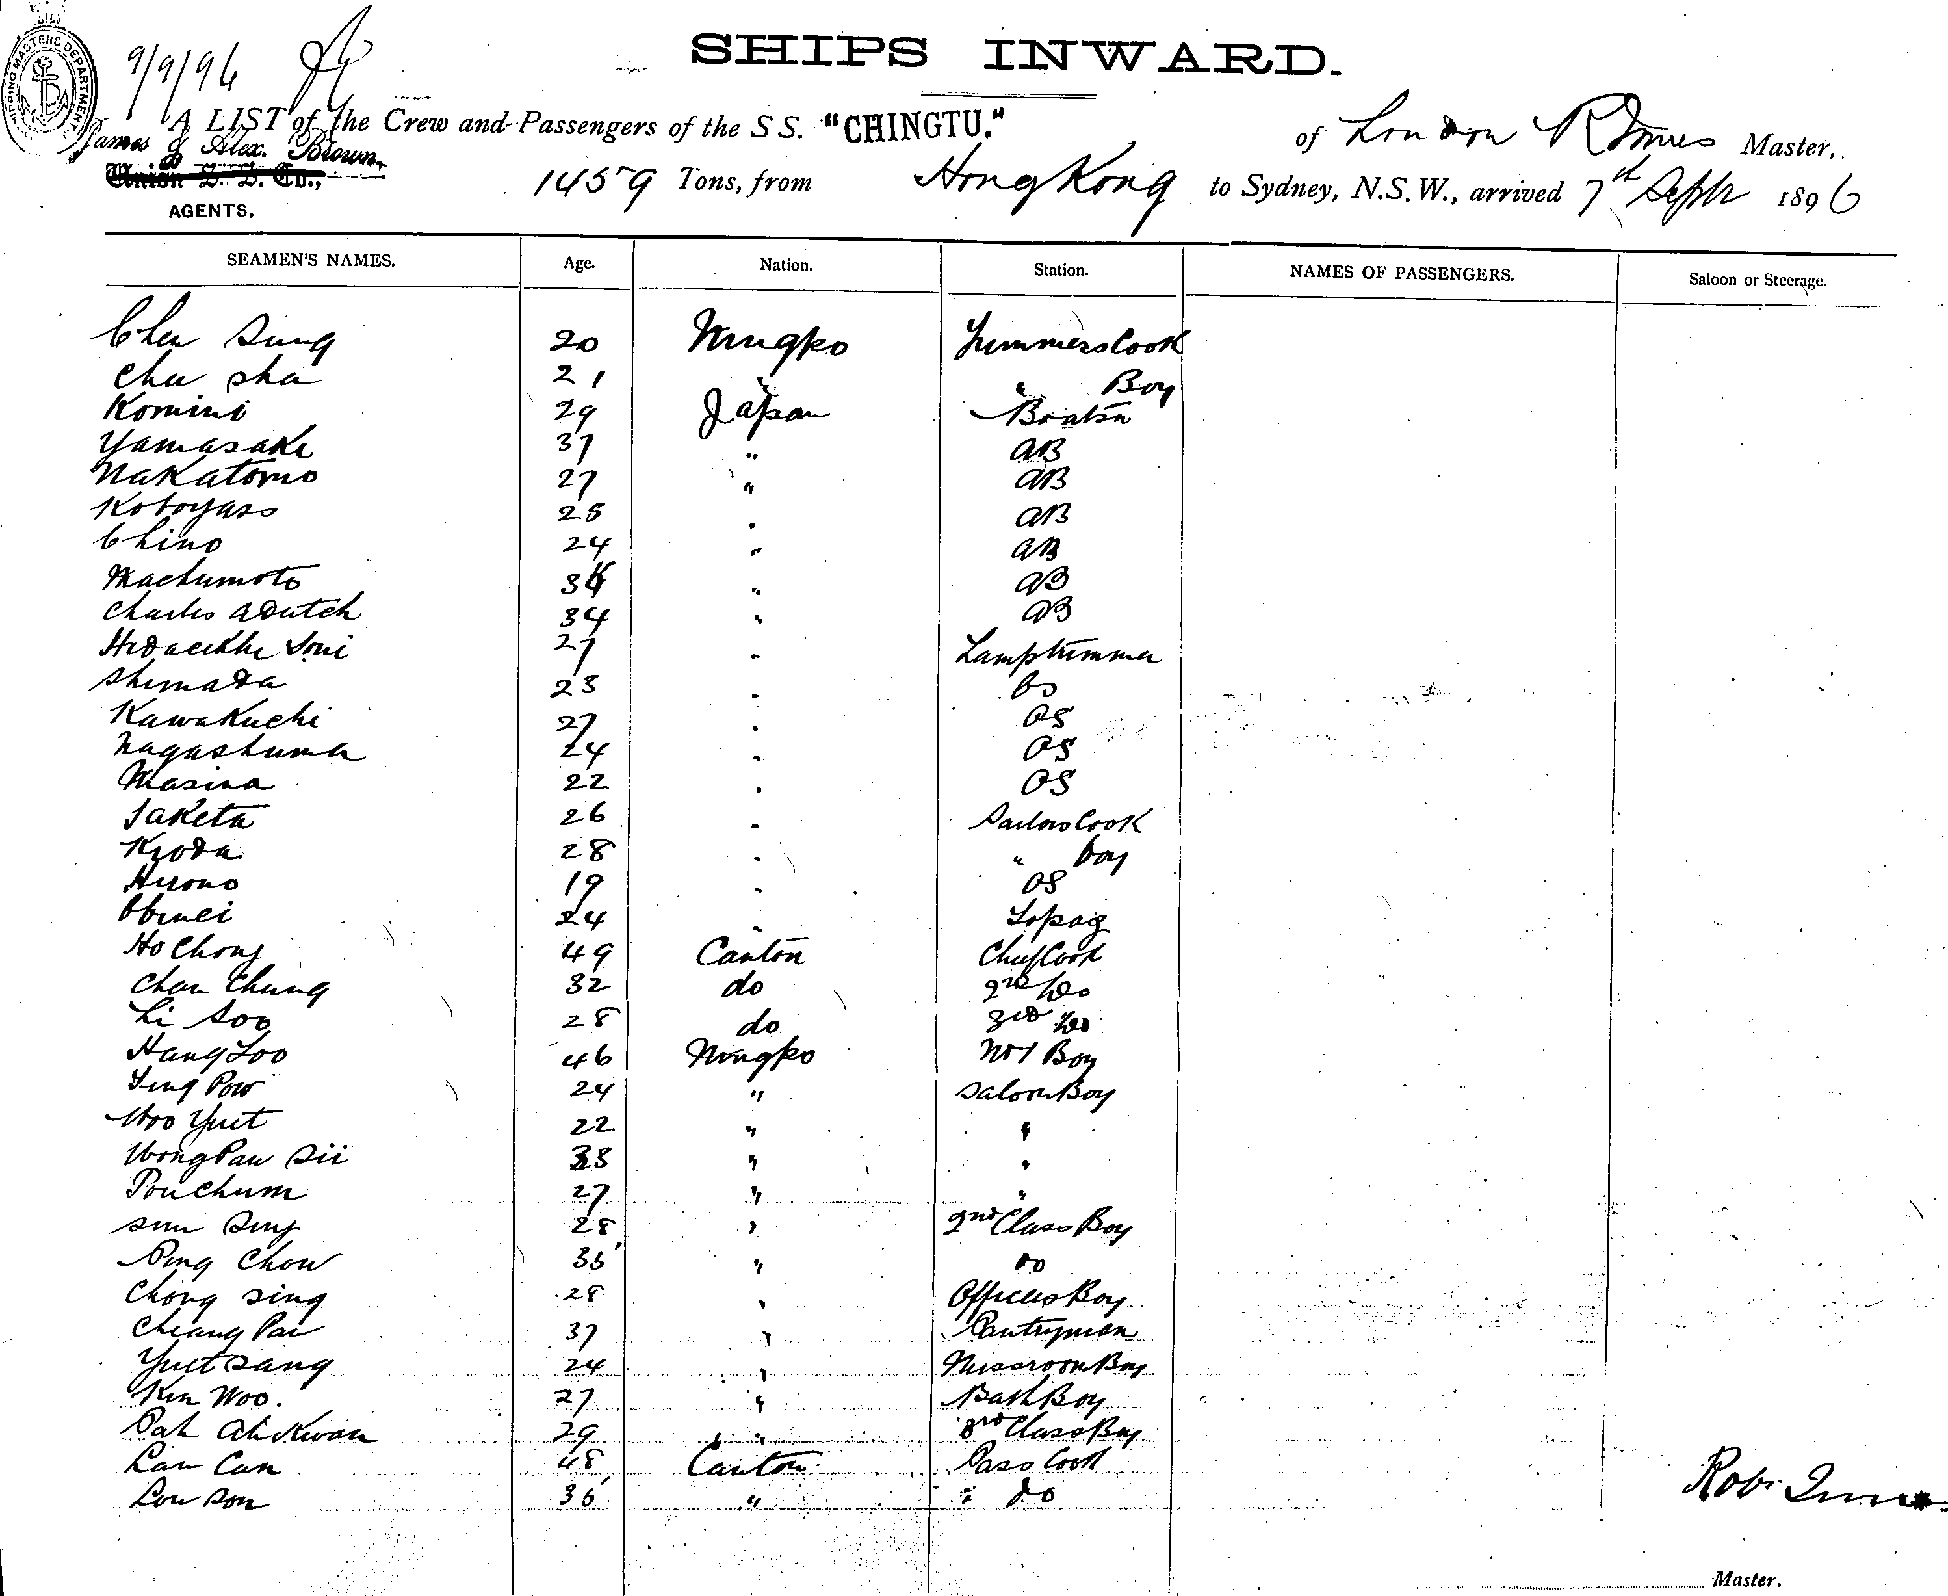 SHIPPING MASTERS DEPARTMENT
9/9/96
SHIPS INWARD.
A LIST of the Crew and Passengers of the S S. "CHINGTU." of London R Innes Master,
James & Alex. Brown,
Union S. S. Co.,
AGENTS.
1459 Tons, from Hong Kong to Sydney, N.S.W., arrived 7th Septr 1896
SEAMEN'S NAMES. Age. Nation. Station. NAMES OF PASSENGERS. Saloon or Steerage.
Chu Sung 20 Ningpo Trimmers Cook
Chu Sha 21 " " Boy
Komini 29 Japan Boatsn
Yamasake 37 " AB
Nakatomo 27 " AB
Koboyass 25 " AB
Chino 24 " AB
Machumoto 34 " AB
Charles a Dutch 34 " AB
27 " Lamptrimmer
Shimada 23 " OS
Kawakuchi 27 " OS
Nagashuma 24 " OS
Masina 22 " OS
Taketa 26 " Sailors Cook
Kioda 28 " " boy
Hirono 19 " OS
24 "
Ho Chong 49 Canton Chief Cook
Chan Chung 32 do 2nd Do
Li Soo 28 do 3rd Do
Hang Loo 46 Ningpo No 1 Boy
Ting Pow 24 " Saloon Boy
Woo Yuet 22 " "
Wong Pau Sii 33 " "
Pou Chum 27 " "
Sun Sing 28 " 2nd Class Boy
Ping Chow 35 " Do
Chong Sing 28 " Officers Boy
Cheang Pai 37 " Pantryman
Yuet Sang 24 " Messroom Boy
Kin Woo. 27 " Bath Boy
Pah Ah Kwan 29 " 3rd Class Boy
Lau Can 48 Canton Pass Cook
Lou Son 36 " " Do
Robt Innes
Master.